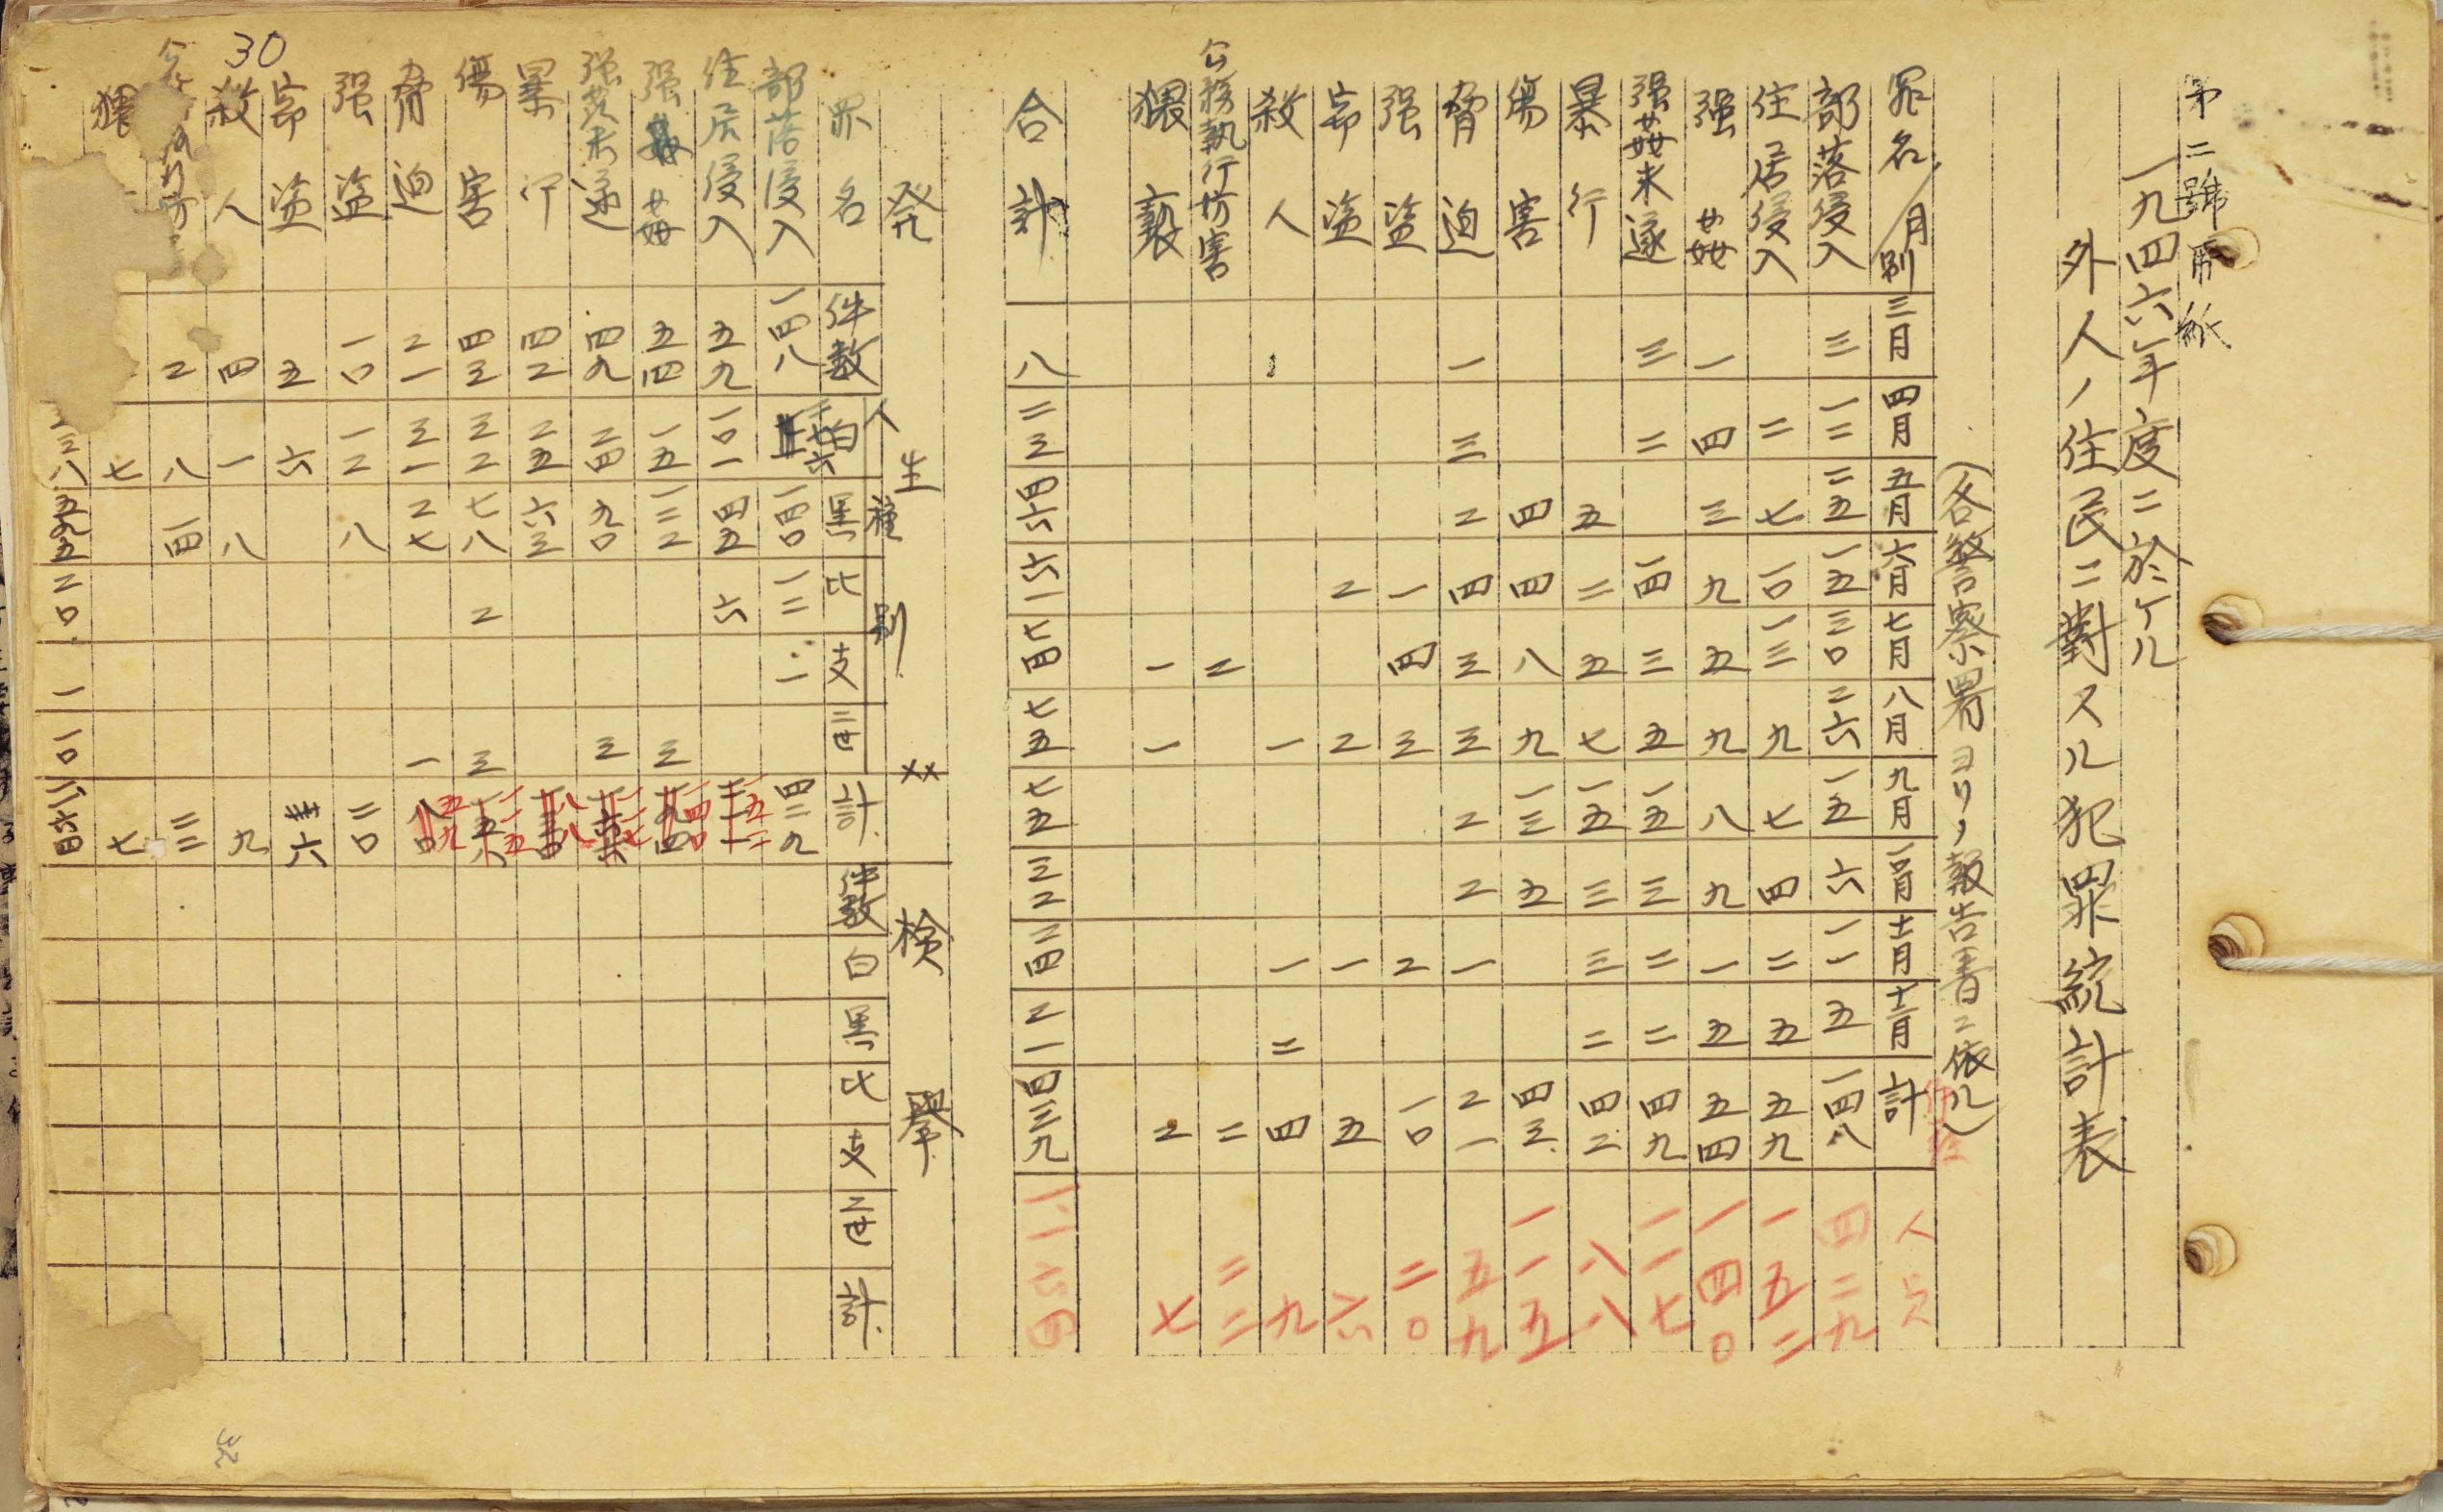 第二號用紙
一九四六年度ニ於ケル
外人ノ住民ニ對スル犯罪統計表
(各警察署ヨリノ報告書ニ依ル)
罪名/月別 三月 四月 五月 六月 七月 八月 九月 一〇月 十一月 十二月 計 人員
部落侵入 三 一二 二五 一五 三〇 二六 一五 六 一一 五 一四八 四二九
住居侵入 二 七 一〇 一三 九 七 四 二 五 五九 一五二
强姦 一 四 三 九 五 九 八 九 一 五 五四 一四〇
强姦未遂 三 二 一四 三 五 一五 三 二 二 四九 一一七
暴行 五 二 五 七 一五 三 三 二 四二 八八
傷害 四 四 八 九 一三 五 四三 一一五
脅迫 一 三 二 四 三 三 二 二 一 二一 五九
强盗 一 四 三 二 一〇 二〇
窃盗 二 二 一 五 六
殺人 一 一 二 四 九
公務執行妨害 二 二 二二
猥褻 一 一 二 七
合計 八 二三 四六 六一 七四 七五 七五 三二 二四 二一 四三九
発生 検擧
人種別
罪名 件数 白 黒 比 支 計 件数 白 黒 比 支 計
部落侵入 一四八 一四〇 一二 一 四二九
住居侵入 五九 一〇一 四五 六 一五二
强姦 五四 一五 一二二 三 一四〇
强姦未遂 四九 二四 九〇 三 一一七
暴行 四二 二五 六三 八八
傷害 四三 三二 七八 二 三 一一五
脅迫 二一 三一 二七 一 五九
强盗 一〇 一二 八 二〇
窃盗 五 六 六
殺人 四 一 八 九
二 八 一四 二二
猥 七 七
五九五 二〇 一 一〇
30
32